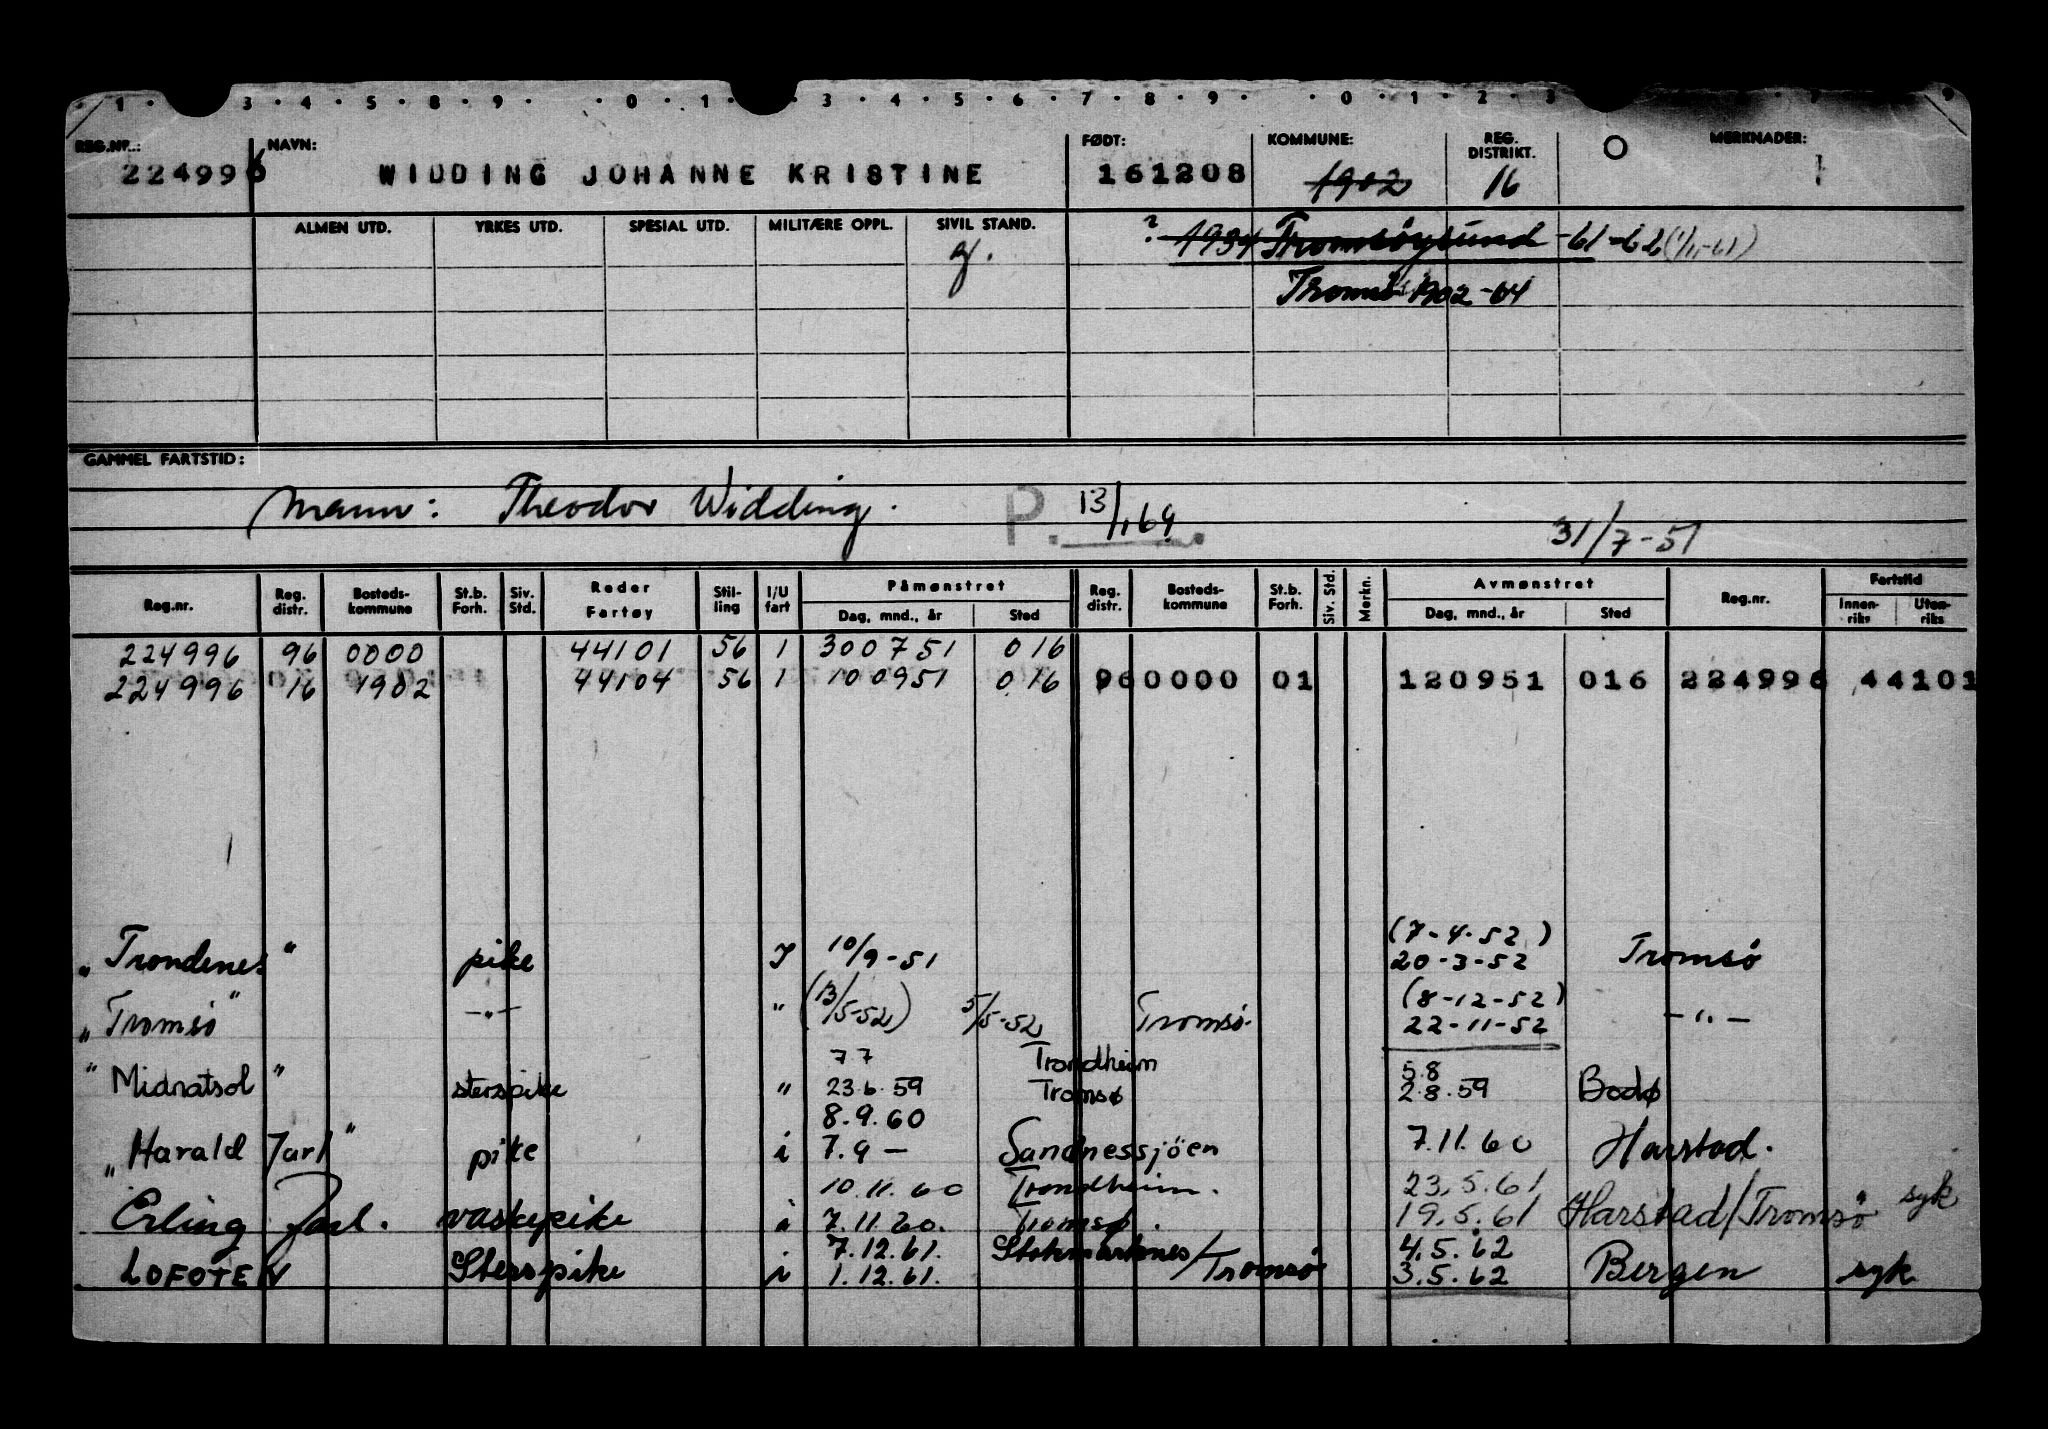 1 3 4 5 8 9 0 1 3 4 5 6 7 8 9 0 1 2 3 7 9
REG.NR.: NAVN: FØDT: KOMMUNE: REG. DISTRIKT. MERKNADER:
224996 WIDDING JOHANNE KRISTINE 161208 1902 16
ALMEN UTD. YRKES UTD. SPESIAL UTD. MILITÆRE OPPL. SIVIL STAND. ? 1934 Tromsøysund -61-62 (1/11-61)
g. Tromsø 1902-64
GAMMEL FARTSTID:
Mann: Theodor Widding. P. 13/1 69
31/7-51
Reg.nr. Reg. distr. Bosteds-kommune St.b. Forh. Siv. Std. Reder Fartøy Stil-ling I/U fart Påmønstret Dag, mnd., år Sted Reg. distr. Bosteds-kommune St.b. Forh. Siv. Std. Merkn. Avmønstret Dag, mnd., år Sted Reg.nr. Fartstid Innen-riks Uten-riks
224996 96 0000 44101 56 1 300751 016
224996 16 1902 44104 56 1 100951 016 960000 01 120951 016 224996 44101
(7-4-52)
"Trondenes" pike I 10/9-51 20-3-52 Tromsø
(8-12-52)
"Tromsø" -"- " (13/5-52) 5/5-52 Tromsø. 22-11-52 -"-
77 Trondheim 5.8
"Midnatsol" sterspike " 23.6.59 Tromsø 2.8.59 Bodø
8.9.60
"Harald Jarl" pike i 7.9 - Sandnessjöen 7.11.60 Harstad.
10.11.60 Trondheim. 23.5.61
Erling Jarl. vaskepike i 7.11.60. Tromsø. 19.5.61 Harstad/Tromsø syk
7.12.61. Stokmarknes/Tromsø 4.5.62
LOFOTEN Sterspike i 1.12.61. 3.5.62 Bergen syk